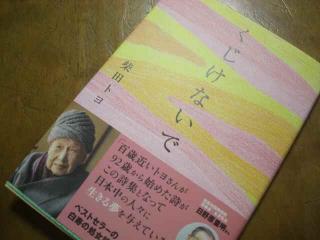 くじけないで
柴田トヨ
百歳近いトヨさんが
92歳から始めた詩が
この詩集となって
日本中の人々に
生きる夢を与えてい
日野原重明
ベストセラーの